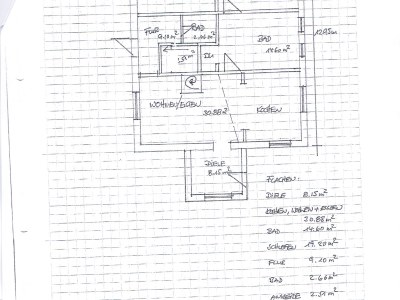 FLUR
9.20 m²
BAD
2.66 m²
BAD
14.60 m²
12.95m
WOHNEN/ESSEN
30.88 m²
KOCHEN
DIELE
8.15 m²
FLÄCHEN:
DIELE 8.15 m²
KOCHEN, WOHNEN + ESSEN
30.88 m²
BAD 14.60 m²
SCHLAFEN 19.20 m²
FLUR 9.20 m²
BAD 2.66 m²